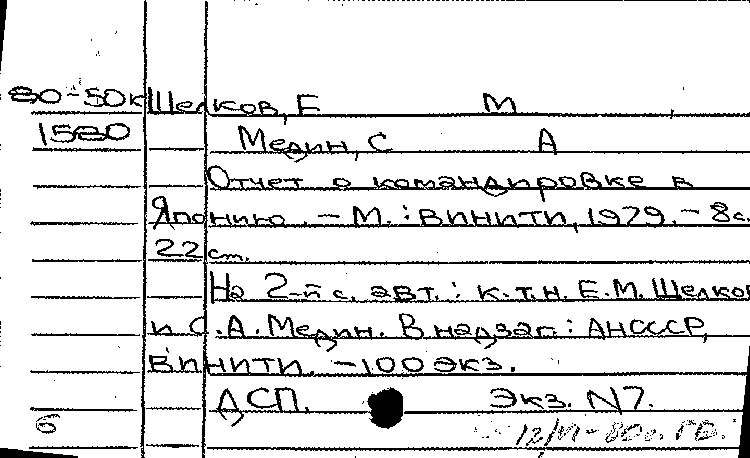 80-50к Шелков, Е М
1580 Медин, С А
Отчет о командировке в
Японию. - М.: ВИНИТИ, 1979. - 8с.
22 см.
На 2-й с. авт.: к.т.н. Е.М. Шелков
и С.А. Медин. В надзаг: АНСССР,
ВИНИТИ. - 100 экз.
ДСП. Экз. N7.
6 12/VI-80г. ГБ.